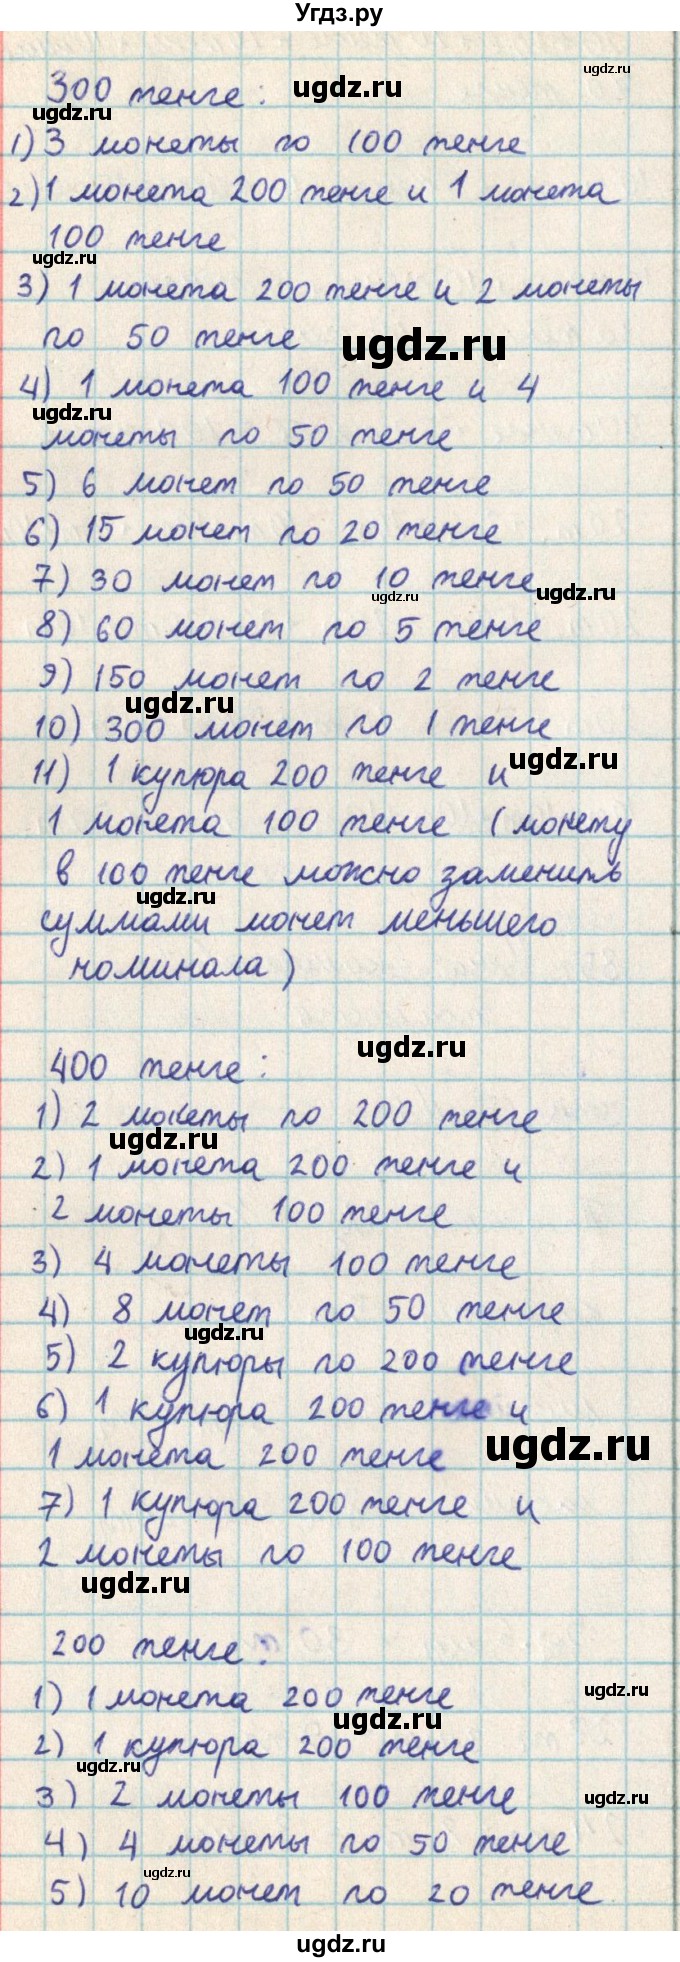 Угдз.ру
300 тенге:
1) 3 монеты по 100 тенге
2) 1 монета 200 тенге и 1 монета
100 тенге
3) 1 монета 200 тенге и 2 монеты
по 50 тенге
4) 1 монета 100 тенге и 4
монеты по 50 тенге
5) 6 монет по 50 тенге
6) 15 монет по 20 тенге
7) 30 монет по 10 тенге
8) 60 монет по 5 тенге
9) 150 монет по 2 тенге
10) 300 монет по 1 тенге
11) 1 купюра 200 тенге и
1 монета 100 тенге (монету
в 100 тенге можно заменить
суммами монет меньшего
номинала)
400 тенге:
1) 2 монеты по 200 тенге
2) 1 монета 200 тенге и
2 монеты 100 тенге
3) 4 монеты 100 тенге
4) 8 монет по 50 тенге
5) 2 купюры по 200 тенге
6) 1 купюра 200 тенге и
1 монета 200 тенге
7) 1 купюра 200 тенге и
2 монеты по 100 тенге
200 тенге:
1) 1 монета 200 тенге
2) 1 купюра 200 тенге
3) 2 монеты 100 тенге
4) 4 монеты по 50 тенге
5) 10 монет по 20 тенге
ugdz.ru